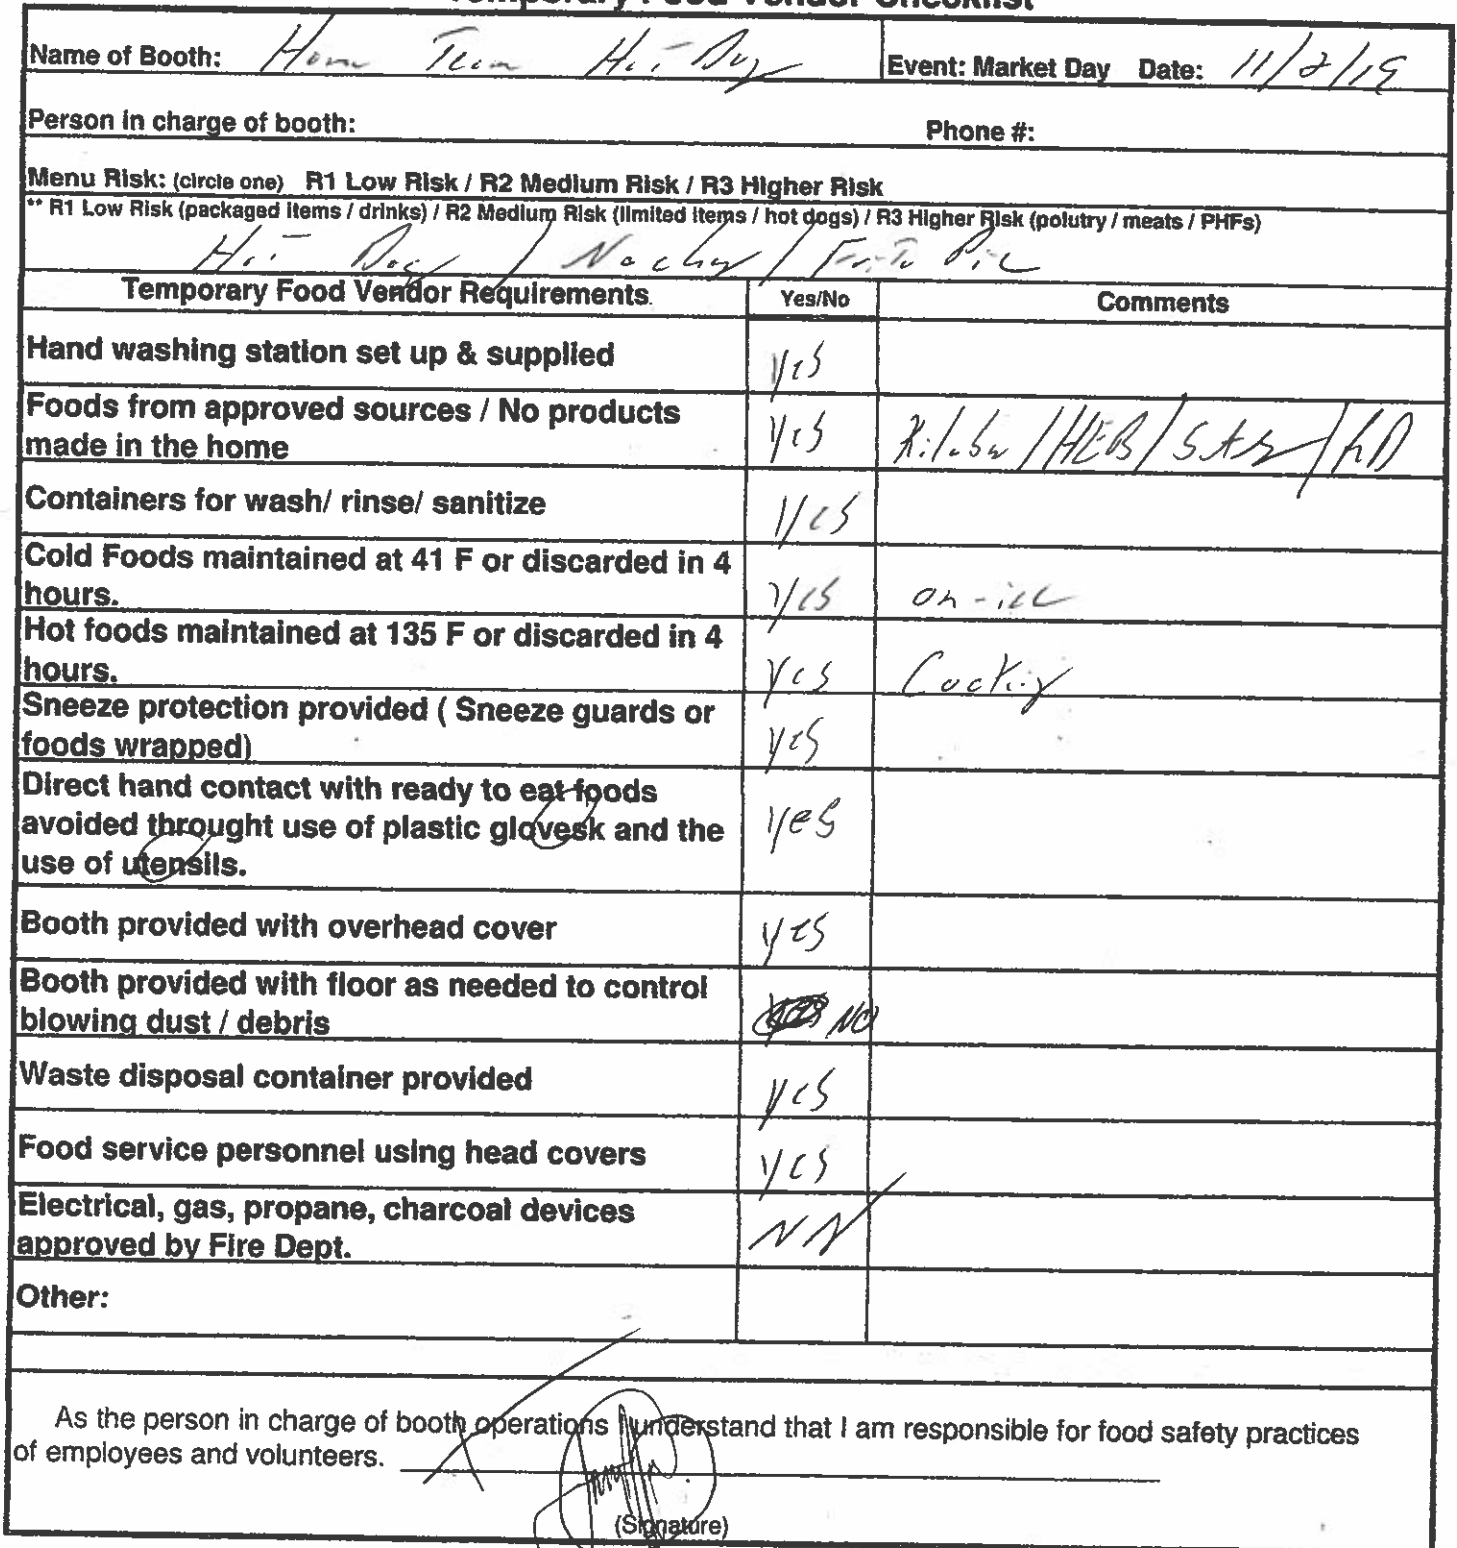 Temporary Food Vendor Checklist
Name of Booth: Home Team Hot Dog Event: Market Day Date: 11/2/19
Person in charge of booth: Phone #:
Menu Risk: (circle one) R1 Low Risk / R2 Medium Risk / R3 Higher Risk
** R1 Low Risk (packaged items / drinks) / R2 Medium Risk (limited items / hot dogs) / R3 Higher Risk (polutry / meats / PHFs)
Hot Dog / Nachos / Frito Pie
Temporary Food Vendor Requirements. Yes/No Comments
Hand washing station set up & supplied yes
Foods from approved sources / No products
made in the home yes /HEB/ /
Containers for wash/ rinse/ sanitize yes
Cold Foods maintained at 41 F or discarded in 4
hours. yes on-ice
Hot foods maintained at 135 F or discarded in 4
hours. yes Cooking
Sneeze protection provided ( Sneeze guards or
foods wrapped) yes
Direct hand contact with ready to eat foods
avoided throught use of plastic glovesk and the yes
use of utensils.
Booth provided with overhead cover yes
Booth provided with floor as needed to control
blowing dust / debris NO
Waste disposal container provided yes
Food service personnel using head covers yes
Electrical, gas, propane, charcoal devices
approved by Fire Dept.
Other:
As the person in charge of booth operations I understand that I am responsible for food safety practices
of employees and volunteers.
(Signature)